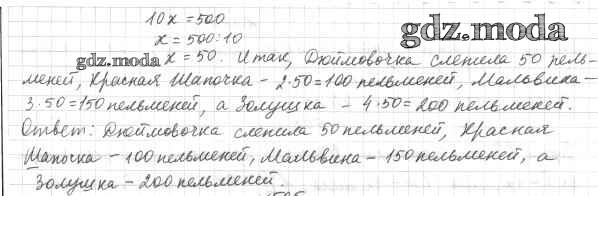 10x = 500
x = 500:10
gdz.moda
gdz.moda
x = 50. Итак, Дюймовочка слепила 50 пель-
меней, Красная Шапочка - 2·50=100 пельменей, Мальвина -
3·50=150 пельменей, а Золушка - 4·50=200 пельменей.
Ответ: Дюймовочка слепила 50 пельменей, Красная
Шапочка - 100 пельменей, Мальвина - 150 пельменей, а
Золушка - 200 пельменей.